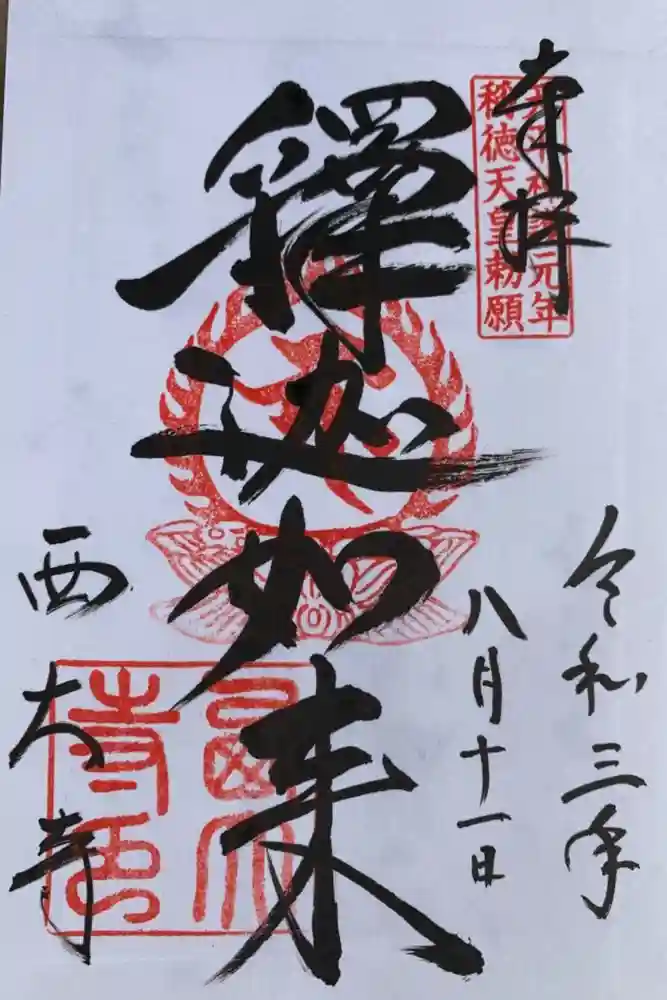 奉拝
天平神護元年
称徳天皇勅願
令和三年
八月十一日
釋迦如来
西大寺
西大
寺印